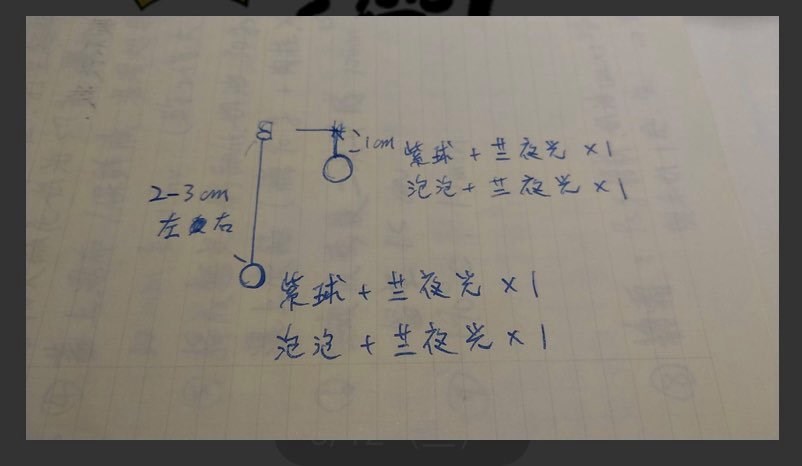 1cm
紫球 + 兰夜光 ×1
泡泡 + 兰夜光 ×1
2-3cm
左右
紫球 + 兰夜光 ×1
泡泡 + 兰夜光 ×1